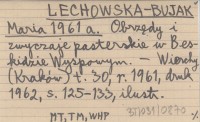 LECHOWSKA-BUJAK
Maria 1961 a. Obrzędy i
zwyczaje pasterskie w Bes-
kidzie Wyspowym. - Wierchy
(Kraków) t. 30, r. 1961, druk
1962, s. 125-133, ilustr.
31/031/0870
MT, TM, WHP